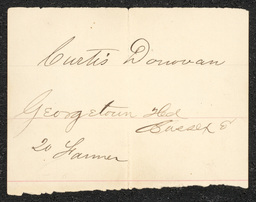 Curtis Donovan
Georgetown Hd
Sussex Co
20 Farmer